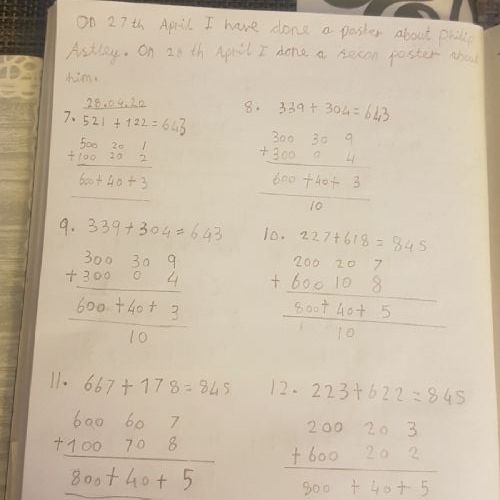 On 27th April I have done a poster about Philip
Astley. On 28th April I done a secon poster about
him.
28.04.20
7. 521 + 122 = 643
500 20 1
+ 100 20 2
600 + 40 + 3
8. 339 + 304 = 643
300 30 9
+ 300 0 4
600 + 40 + 3
10
9. 339 + 304 = 643
300 30 9
+ 300 0 4
600 + 40 + 3
10
10. 227 + 618 = 845
200 20 7
+ 600 10 8
800 + 40 + 5
10
11. 667 + 178 = 845
600 60 7
+ 100 70 8
800 + 40 + 5
12. 223 + 622 = 845
200 20 3
+ 600 20 2
800 + 40 + 5